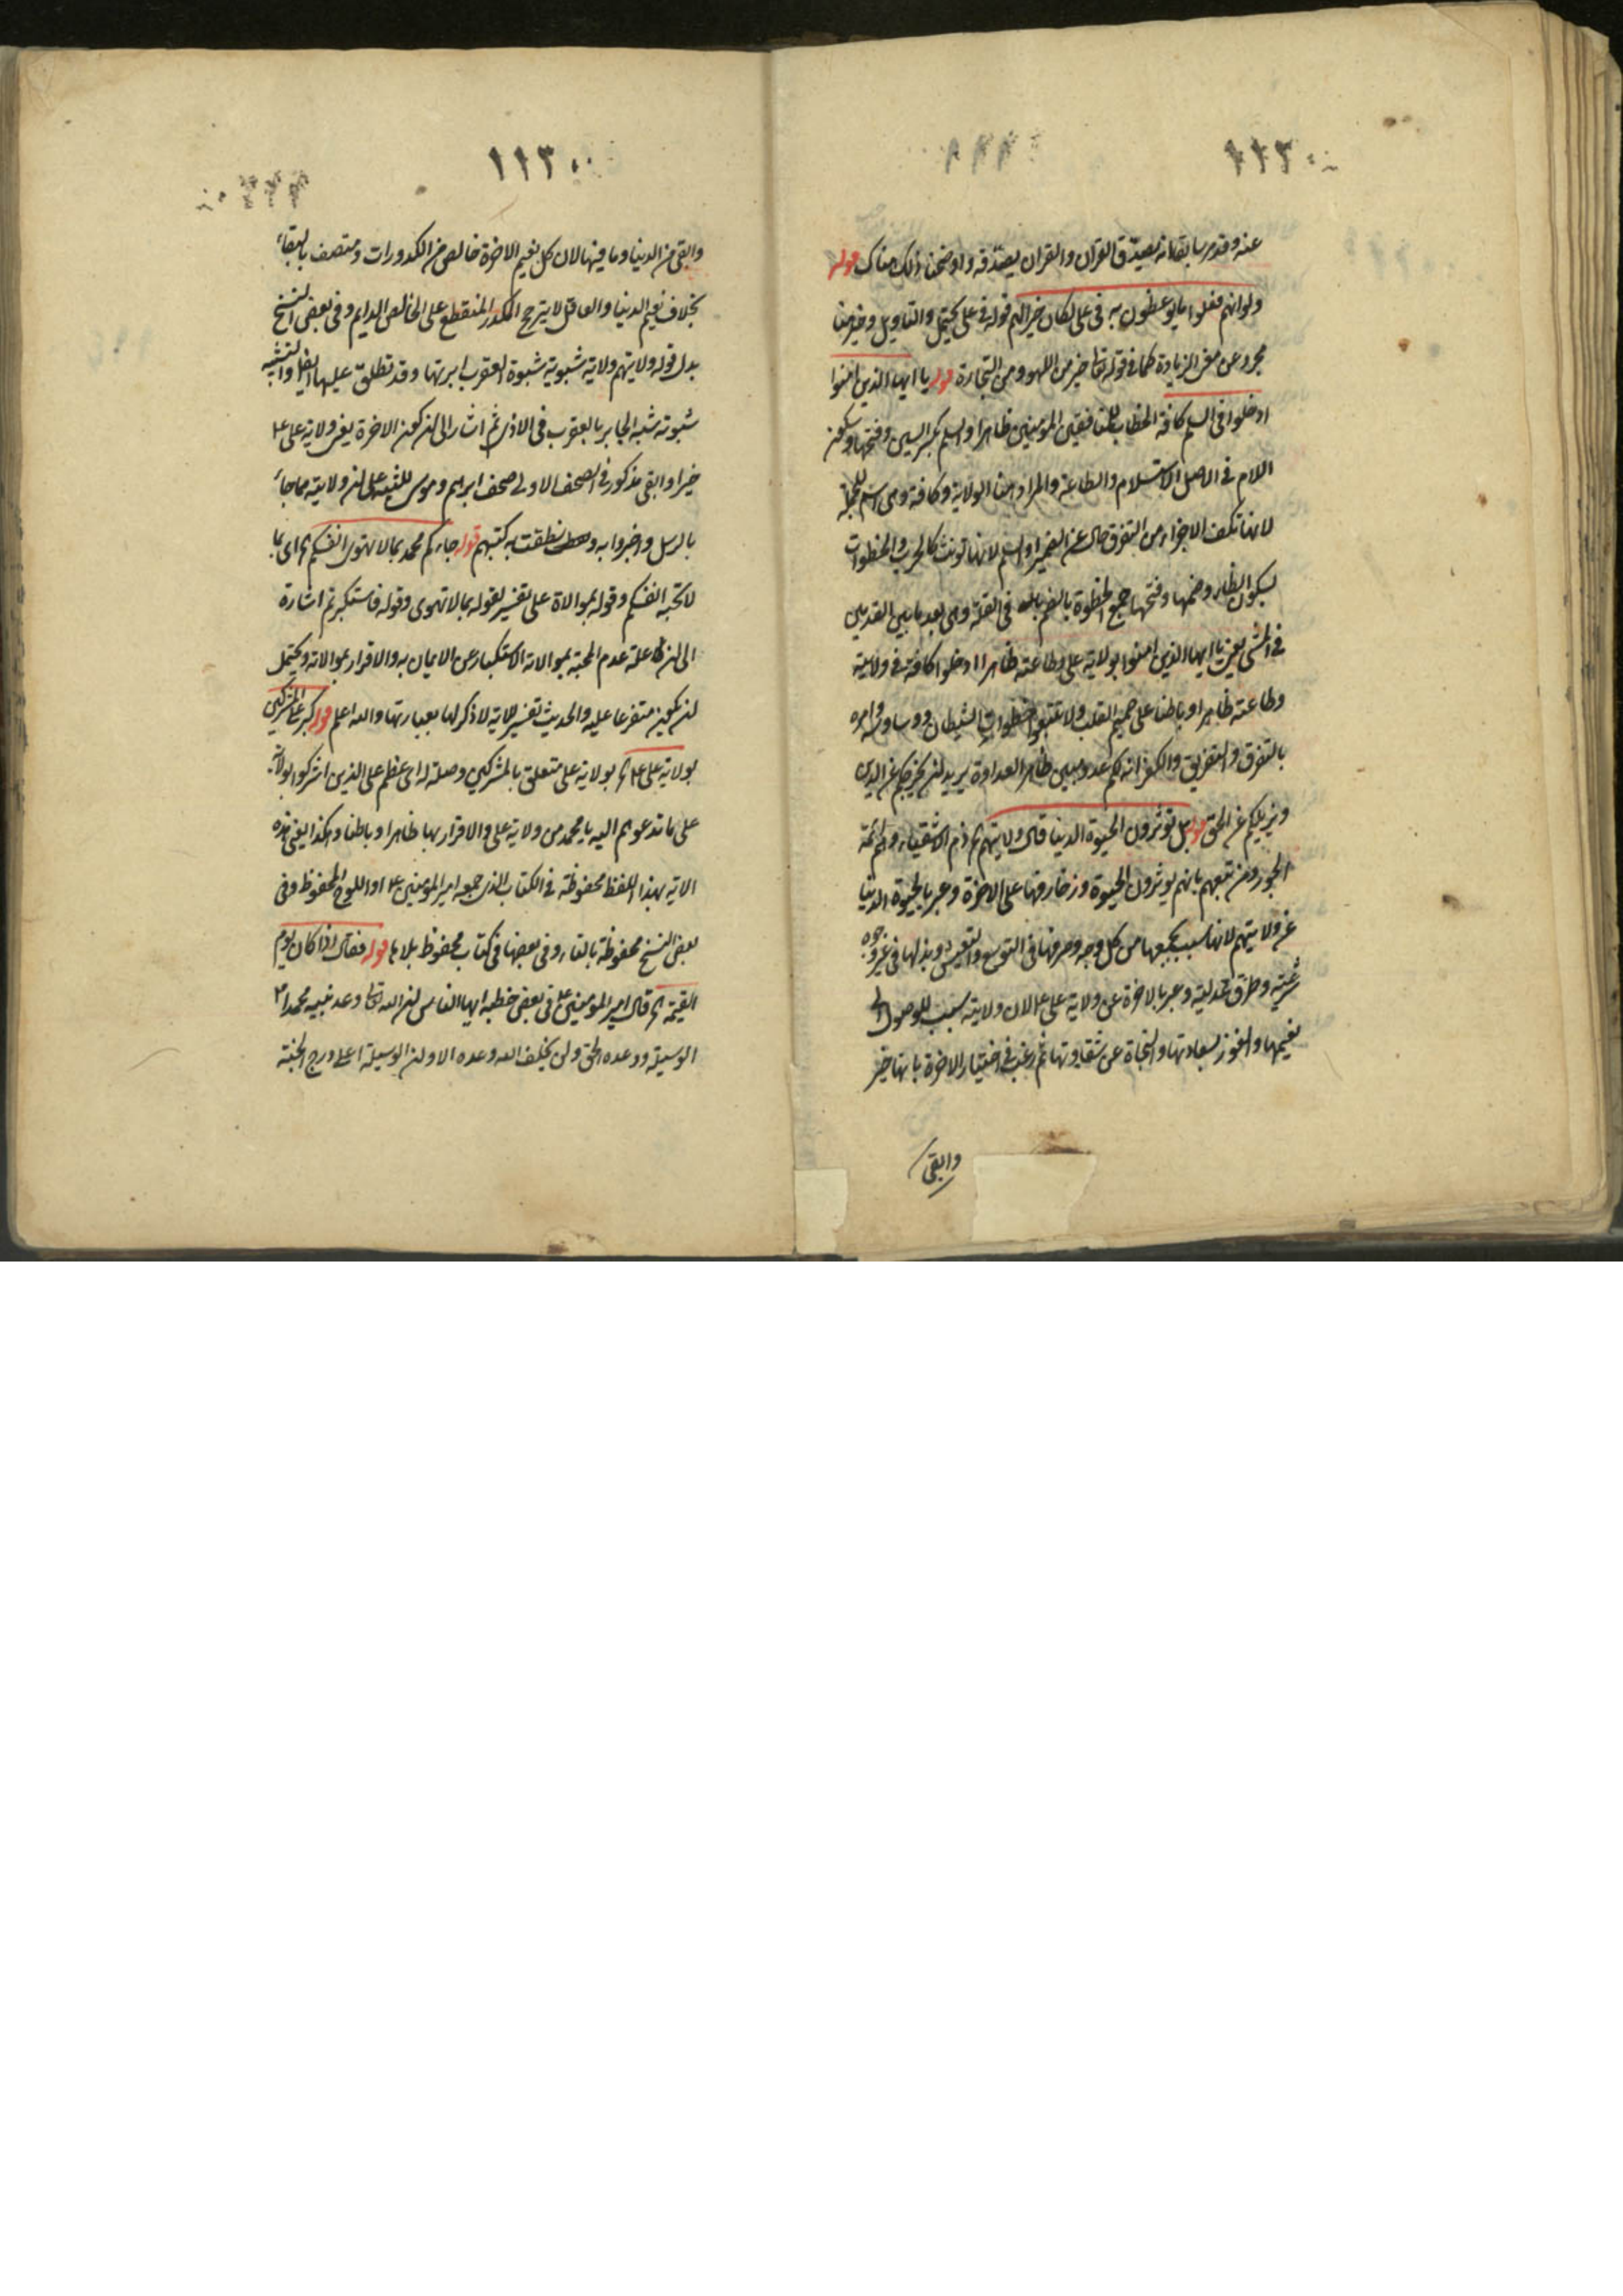 ١١٣٠
عنه وقد مر سابقا انه يصدق القرآن والقرآن يصدقه واوضحنا ذلك هناك قوله
ولو انهم فعلوا ما يوعظون به في على لكان خيرا لهم قوله في على يحتمل والتاويل وخير هنا
مجرد عن معنى الزيادة كما في قوله تعا خير من اللهو ومن التجارة قوله يا ايها الذين امنوا
ادخلوا في السلم كافة الخطاب للمنافقين المؤمنين ظاهرا والسلم بكسر السين وفتحها وسكون
اللام في الاصل الاستسلام والطاعة والمراد هنا الولاية وكافة وهي اسم للجملة
لانها تكف الاجزاء من التفرق حال عن الضمير او السلم لانها تونث كالحرب والخطوات
بسكون الطاء وضمها وفتحها جمع الخطوة بالضم في القلة وهي بعد ما بين القدمين
في المشي يعني يا ايها الذين امنوا بولاية على وطاعته ظاهرا ادخلوا كافة في ولايته
وطاعته ظاهرا وباطنا على صميم القلب ولا تتبعوا خطوات الشيطان ووساوسه وامره
بالتفرق والتفريق والكفر انه لكم عدو مبين ظاهر العداوة يريد لن يخرجكم عن الدين
ويزيلكم عن الحق قوله بل تؤثرون الحيوة الدنيا قال ولايتهم الخ ذم الاشقياء وائمة
الجور ومن تبعهم بانهم يوثرون الحيوة وزخارفها على الاخرة وعبر بالحيوة الدنيا
عن ولايتهم لانها سبب لجمعها من كل وجه وصرفها في التوسع والتعيش وبذلها في غير وجوه
شرعية وطرق عدلية وعبر بالاخرة عن ولاية على ع لان ولايته سبب للوصول الى
نعيمها والفوز بسعادتها والنجاة عن شقاوتها ثم رغب في اختيار الاخرة بانها خير
وابقى
١١٣٠
وابقى من الدنيا وما فيها لان كل نعيم الاخرة خالص من الكدورات ومتصف بالبقاء
بخلاف نعيم الدنيا والعاقل لا يرجح المكدر المنقطع على الخالص الدايم وفي بعض النسخ
بدل قوله ولايتهم ولاية شبوية شبوة العقرب ابرتها وقد تطلق عليها ايضا والتشبيه
شبوته شبه الجابر بالعقرب في الاذى ثم اشار الى لن كون الاخرة يعني ولاية على ع
خيرا وابقى مذكور في الصحف الاولى صحف ابرهيم وموسى للتنبيه على لن ولايته مما جاء
بالرسل واخبروا به ونطقت به كتبهم قوله جاءكم محمد بما لا تهوى انفسكم الخ اى بما
لا تحبه انفسكم وقوله بموالاة على تفسير لقوله بما لا تهوى وقوله فاستكبرتم اشارة
الى لن علة عدم المحبة بموالاته الاستكبار عن الايمان به والاقرار بموالاته ويحتمل
لن يكون متفرعا عليه والحديث تفسير للاية لا ذكر لها بعبارتها والله اعلم قوله كبر على المشركين
بولاية على ع الخ بولاية على متعلق بالمشركين وصلة له اى عظم على الذين اشركوا بولاية
على ما تدعوهم اليه يا محمد من ولاية على والاقرار بها ظاهرا وباطنا وهكذا يعني هذه
الاية بهذا اللفظ محفوظة في الكتاب الذي جمعه امير المؤمنين ع او اللوح المحفوظ وفي
بعض النسخ محفوظة بالتاء وفي بعضها في كتاب محفوظ بلا ها قوله فقال اذا كان يوم
القيمة الخ قال امير المؤمنين ع في بعض خطبه ايها الناس لن الله تعا وعد نبيه محمدا ص
الوسيلة ووعده الحق ولن يخلف الله وعده الا ولن الوسيلة اعلى درج الجنة